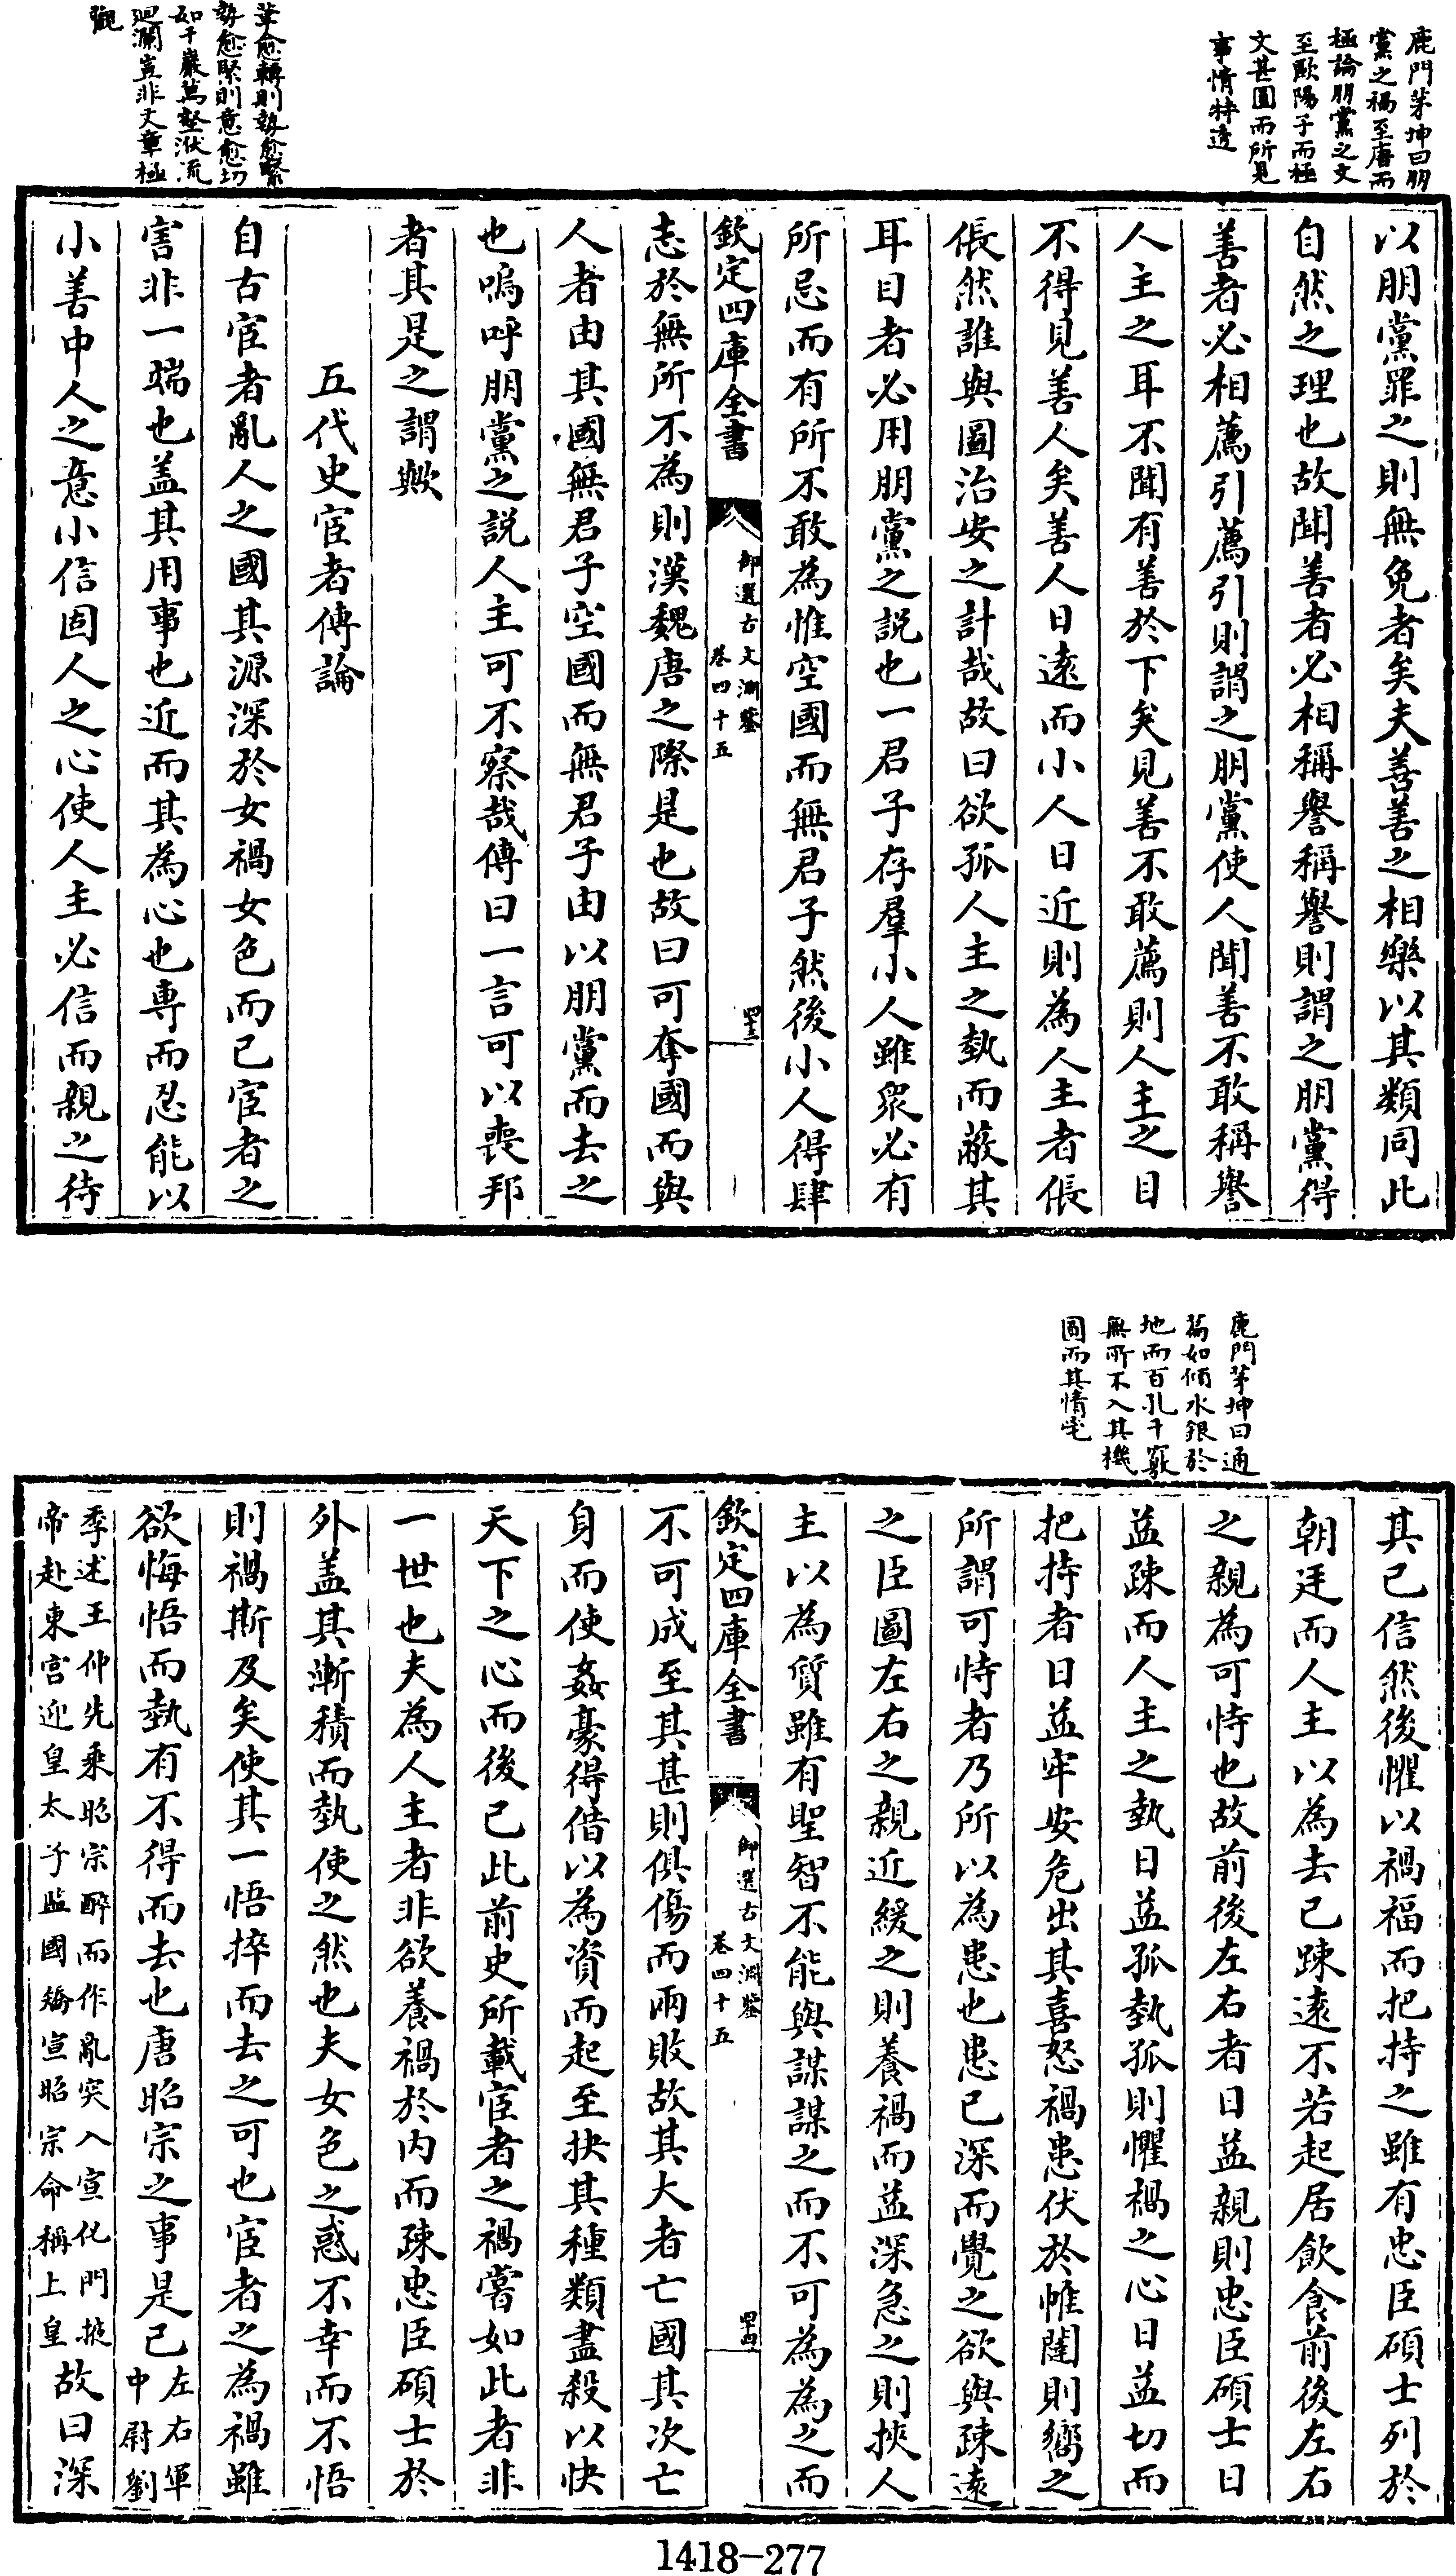 鹿門茅坤曰朋
黨之禍至唐而
極論朋黨之文
至歐陽子而極
文甚圓而所見
事情特透
以朋黨罪之則無免者矣夫善善之相樂以其類同此
自然之理也故聞善者必相稱譽稱譽則謂之朋黨得
善者必相薦引薦引則謂之朋黨使人聞善不敢稱譽
人主之耳不聞有善於下矣見善不敢薦則人主之目
不得見善人矣善人日遠而小人日近則為人主者倀
倀然誰與圖治安之計哉故曰欲孤人主之埶而蔽其
耳目者必用朋黨之説也一君子存羣小人雖衆必有
所忌而有所不敢為惟空國而無君子然後小人得肆
欽定四庫全書
御選古文淵鑒
卷四十五
四十三
志於無所不為則漢魏唐之際是也故曰可奪國而與
人者由其國無君子空國而無君子由以朋黨而去之
也嗚呼朋黨之説人主可不察哉傳曰一言可以喪邦
者其是之謂歟
五代史宦者傳論
筆愈轉則埶愈緊
埶愈緊則意愈切
如千巖萬壑洑流
廻瀾豈非文章極
觀
自古宦者亂人之國其源深於女禍女色而已宦者之
害非一端也盖其用事也近而其為心也専而忍能以
小善中人之意小信固人之心使人主必信而親之待
鹿門茅坤曰通
篇如傾水銀於
地而百孔千竅
無所不入其機
圓而其情鬯
其已信然後懼以禍福而把持之雖有忠臣碩士列於
朝廷而人主以為去已踈遠不若起居飲食前後左右
之親為可恃也故前後左右者日益親則忠臣碩士日
益踈而人主之埶日益孤埶孤則懼禍之心日益切而
把持者日益牢安危出其喜怒禍患伏於帷闥則嚮之
所謂可恃者乃所以為患也患已深而覺之欲與踈遠
之臣圖左右之親近緩之則養禍而益深急之則挾人
主以為質雖有聖智不能與謀謀之而不可為為之而
欽定四庫全書
御選古文淵鑒
卷四十五
四十四
不可成至其甚則俱傷而兩敗故其大者亡國其次亡
身而使姦豪得借以為資而起至抉其種類盡殺以快
天下之心而後已此前史所載宦者之禍嘗如此者非
一世也夫為人主者非欲養禍於内而踈忠臣碩士於
外盖其漸積而埶使之然也夫女色之惑不幸而不悟
則禍斯及矣使其一悟捽而去之可也宦者之為禍雖
欲悔悟而埶有不得而去也唐昭宗之事是已左右軍
中尉劉
季述王仲先乘昭宗醉而作亂突入宣化門掖
帝赴東宫迎皇太子監國矯宣昭宗命稱上皇故曰深
1418-277